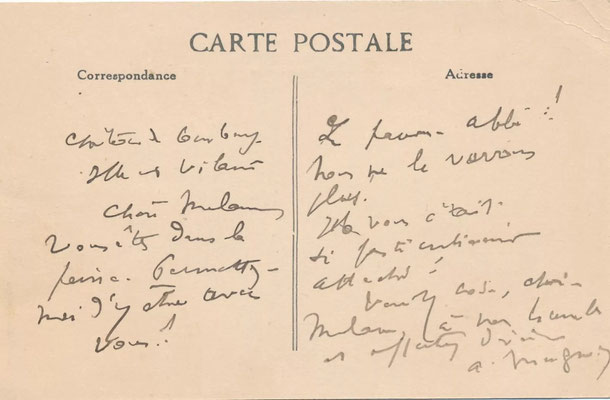 CARTE POSTALE
Correspondance
Adresse
Château de
Ille et Vilaine
Chère Madame
Vous êtes dans la
peine. Permettez-
moi d'y être avec
vous !
Le pauvre abbé !!
nous ne le verrons
plus.
Il vous était
si
attaché !
Veuillez croire, chère
Madame, à mes
et affectueux
a.